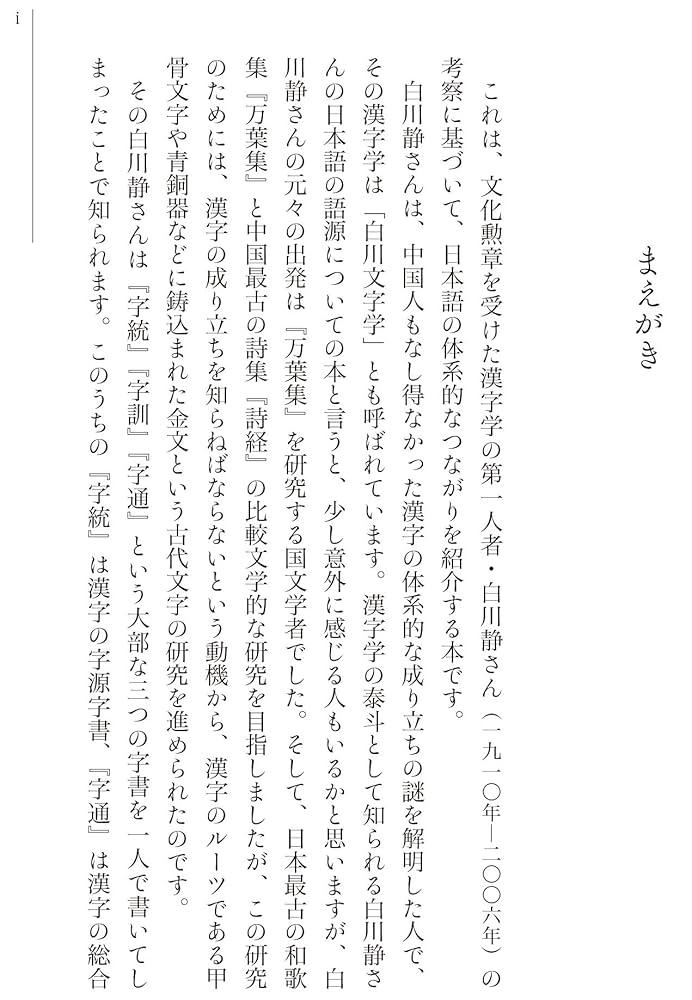 まえがき
これは、文化勲章を受けた漢字学の第一人者・白川静さん（一九一〇年―二〇〇六年）の
考察に基づいて、日本語の体系的なつながりを紹介する本です。
白川静さんは、中国人もなし得なかった漢字の体系的な成り立ちの謎を解明した人で、
その漢字学は「白川文字学」とも呼ばれています。漢字学の泰斗として知られる白川静さ
んの日本語の語源についての本と言うと、少し意外に感じる人もいるかと思いますが、白
川静さんの元々の出発は『万葉集』を研究する国文学者でした。そして、日本最古の和歌
集『万葉集』と中国最古の詩集『詩経』の比較文学的な研究を目指しましたが、この研究
のためには、漢字の成り立ちを知らねばならないという動機から、漢字のルーツである甲
骨文字や青銅器などに鋳込まれた金文という古代文字の研究を進められたのです。
その白川静さんは『字統』『字訓』『字通』という大部な三つの字書を一人で書いてし
まったことで知られます。このうちの『字統』は漢字の字源字書、『字通』は漢字の総合
i